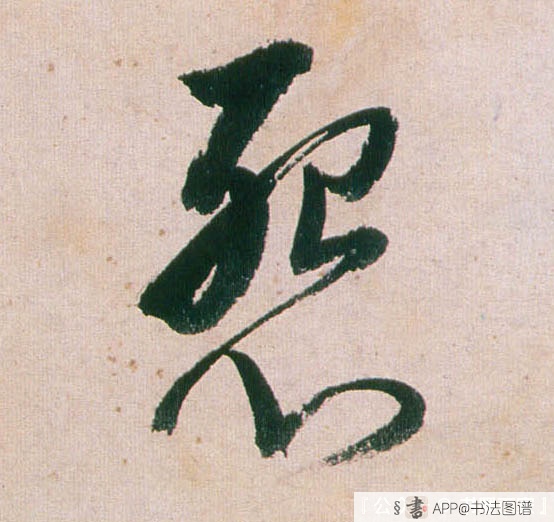 怨
§書 APP@书法图谱